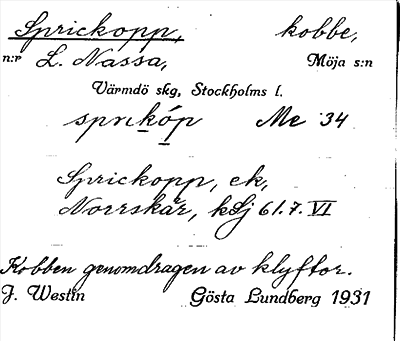 Sprickopp, kobbe,
n:r L. Nassa, Möja s:n
Värmdö skg, Stockholms l.
sprıkóp Me 34
Sprickopp, ek,
Norrskär, kSj 61.7.VI
Kobben genomdragen av klyftor.
J. Westin Gösta Lundberg 1931